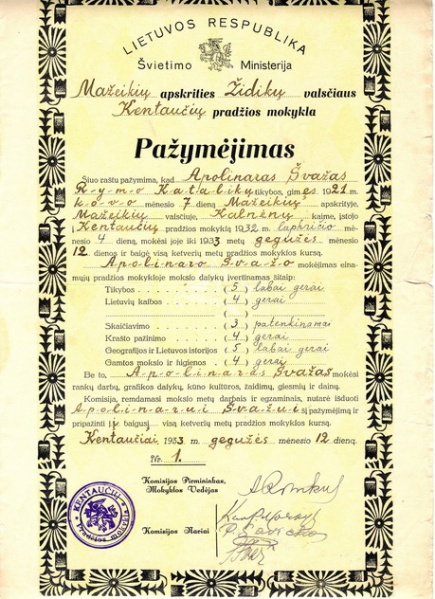 LIETUVOS RESPUBLIKA
Švietimo Ministerija
Mažeikių apskrities Židikų valsčiaus
Kentaučių pradžios mokykla
Pažymėjimas
Šiuo raštu pažymima, kad Apolinaras Švažas
Rymo Katalikų tikybos, gimęs 1921 m.
kovo mėnesio 7 dieną Mažeikių apskrityje,
Mažeikių valsčiuje, Kalnėnų kaime, įstojo
Kentaučių pradžios mokyklą 1932 m. lapkričio mėnesio
4 dieną, mokėsi joje iki 1933 metų gegužės mėnesio
12 dienos ir baigė visą ketverių metų pradžios mokyklos kursą.
Apolinaro Švažo mokėjimas einamųjų
pradžios mokykloje mokslo dalykų įvertinamas šitaip:
Tikybos (5) labai gerai
Lietuvių kalbos (4) gerai
Skaičiavimo (3) patenkinamai
Krašto pažinimo (4) gerai
Geografijos ir Lietuvos istorijos (5) labai gerai
Gamtos mokslo ir higienos (4) gerai
Be to, Apolinaras Švažas mokėsi
rankų darbų, grafikos dalykų, kūno kultūros, žaidimų, giesmių ir dainų.
Komisija, remdamasi mokslo metų darbais ir egzaminais, nutarė išduoti
Apolinarui Švažui šį pažymėjimą ir
pripažinti jį baigusį visą ketverių metų pradžios mokyklos kursą.
Kentaučiai, 1933 m. gegužės mėnesio 12 dieną.
Nr. 1.
Komisijos Pirmininkas,
Mokyklos Vedėjas
Komisijos Nariai
KENTAUČIŲ